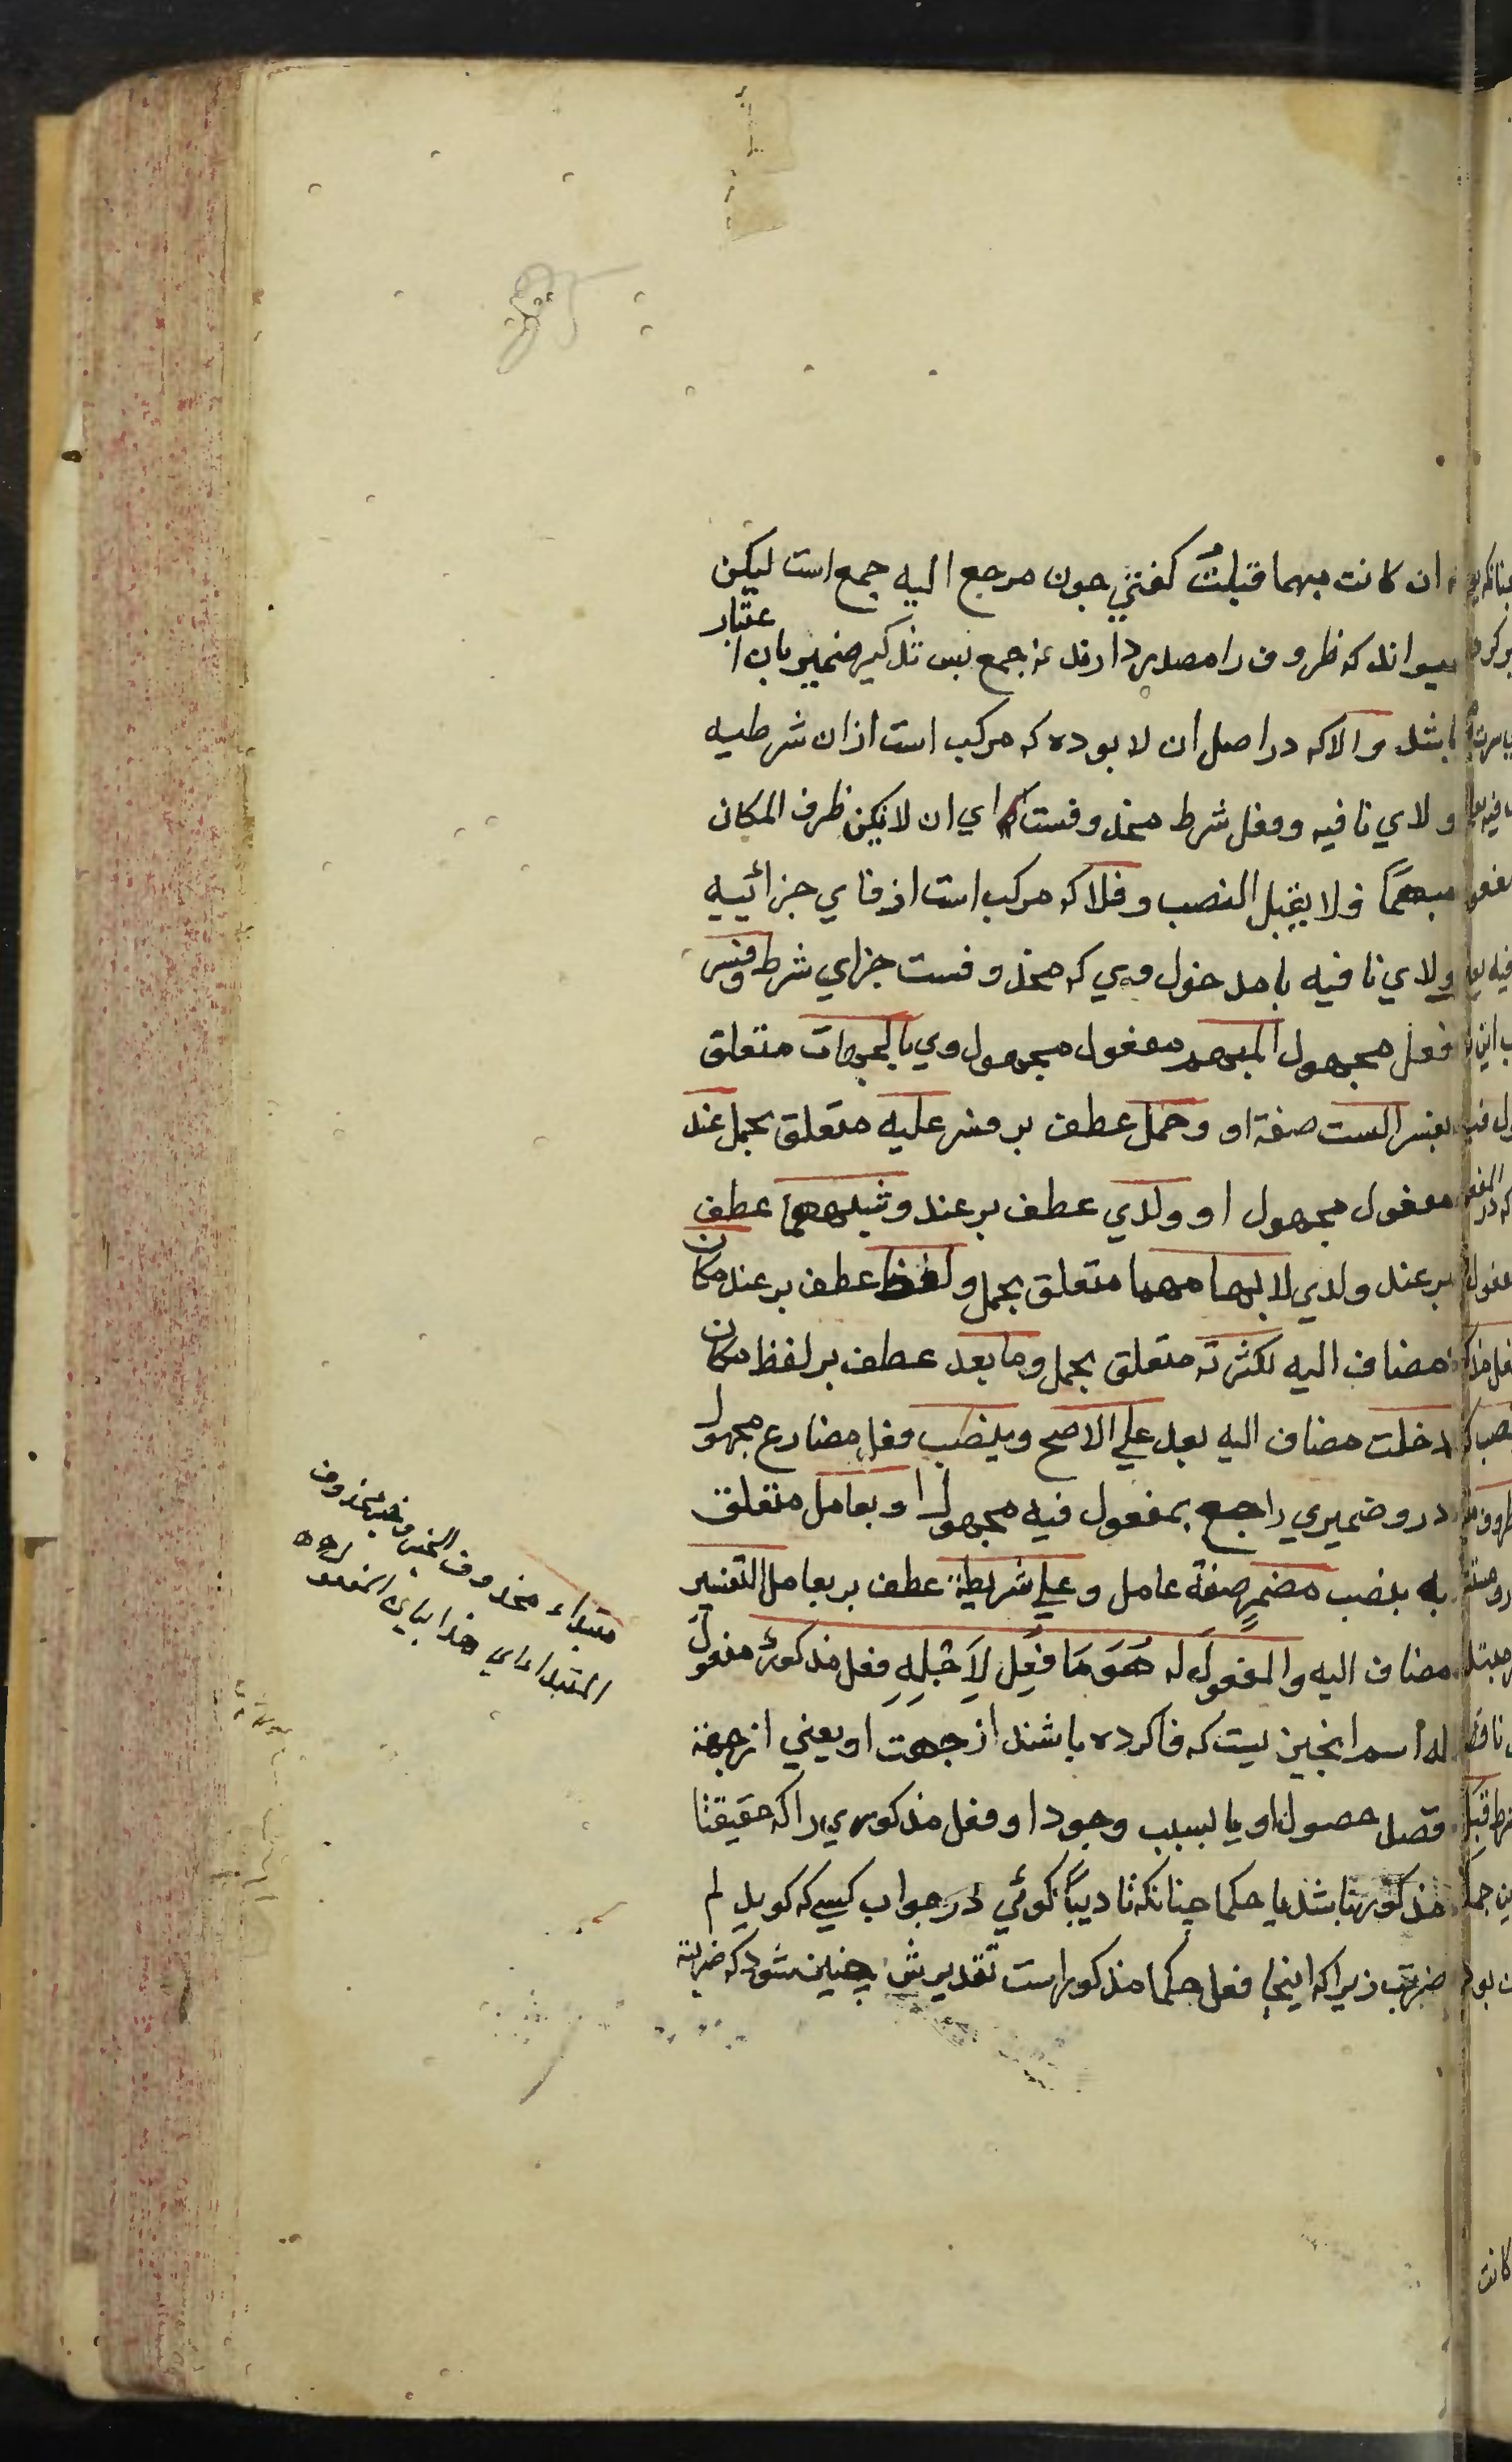 ان كانت مبهما قبلتْ كفتني جون مرجع اليه جمع است ليكن
ميواند كه ظروف را مصدر دارند نه جمع بس تذكير ضمير بان اعتبار
باشد والا كه در اصل ان لا بوده كه مركب است از ان شرطيه
ولاي نافيه وفعل شرط محذوفست اي ان لا يكن ظرف المكان
مبهمًا فلا يقبل النصب وفلا كه مركب است از فاي جزائيه
ولاي نافيه با مدخول وي كه محذوفست جزاي شرط وفسر
فعل مجهول المبهم مفعول مجهول وي بالجهات متعلق
بفسر الست صفة او وحمل عطف بر فسر عليه متعلق بحمل عند
مفعول مجهول او ولدي عطف بر عند وشبههما عطف
بر عند ولدي لابهامهما متعلق بحمل ولفظ عطف بر عند مكان
مضاف اليه لكثرته متعلق بحمل وما بعد عطف بر لفظ مكان
دخلت مضاف اليه بعد علي الاصح وينصب فعل مضارع مجهول
درو ضميري راجع بمفعول فيه مجهول او بعامل متعلق
به ينصب مضمرٍ صفة عامل وعلي شريطة عطف بر بعامل التفسير
مضاف اليه والمفعول له هُوَ مَا فُعِل لِاَجْلِهِ فعل مذكورٌ مفعول
له اسم انجيزيست كه فا كرده باشند از جهت او يعني ازجهة
قصد حصول او يا بسبب وجود او فعل مذكوري را كه حقيقتا
مذكور باشد يا حكما چنانكه تاديبًا كوئي در جواب كسي كه كويد لم
ضربت زيرا كه اينجا فعل حكما مذكور است تقديرش چنين شود كه ضربته
مبتداء محذوف الخبر وخبر محذوف
المبتدا اي هذا بيان المفعول
كانت